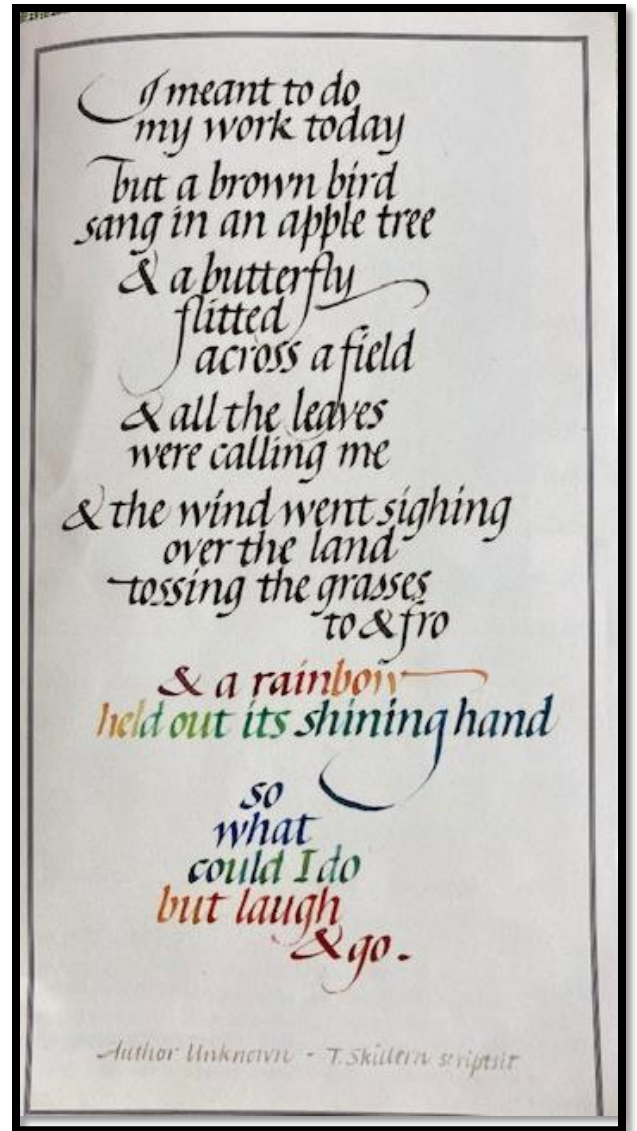 I meant to do
my work today
but a brown bird
sang in an apple tree
& a butterfly
flitted
across a field
& all the leaves
were calling me
& the wind went sighing
over the land
tossing the grasses
to & fro
& a rainbow
held out its shining hand
so
what
could I do
but laugh
& go.
Author Unknown - T. Skillern scriptsit